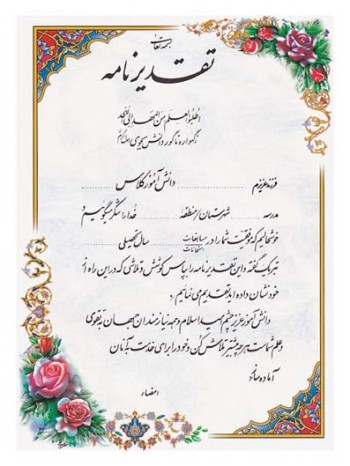 بسمه تعالی
تقدیرنامه
اطلبوا العلم من المهد الی اللحد
ز گهواره تا گور دانش بجوی
فرزند عزیزم .................... دانش آموز کلاس ....................
مدرسه .................... شهرستان / منطقه .................... خدا را شکر میگوییم و
خوشحالیم که موفقیت شما را در مسابقات امتحانات .................... سال تحصیلی ....................
تبریک گفته و این تقدیرنامه را بپاس کوشش و تلاشی که در این راه از
خود نشان داده اید تقدیم می نمائیم .
دانش آموز عزیز چشم امید اسلام و همه نیازمندان جهان به تقوی
و علم شماست هر چه بیشتر تلاش کن و خود را برای خدمت به آنان
آماده ساز
امضاء